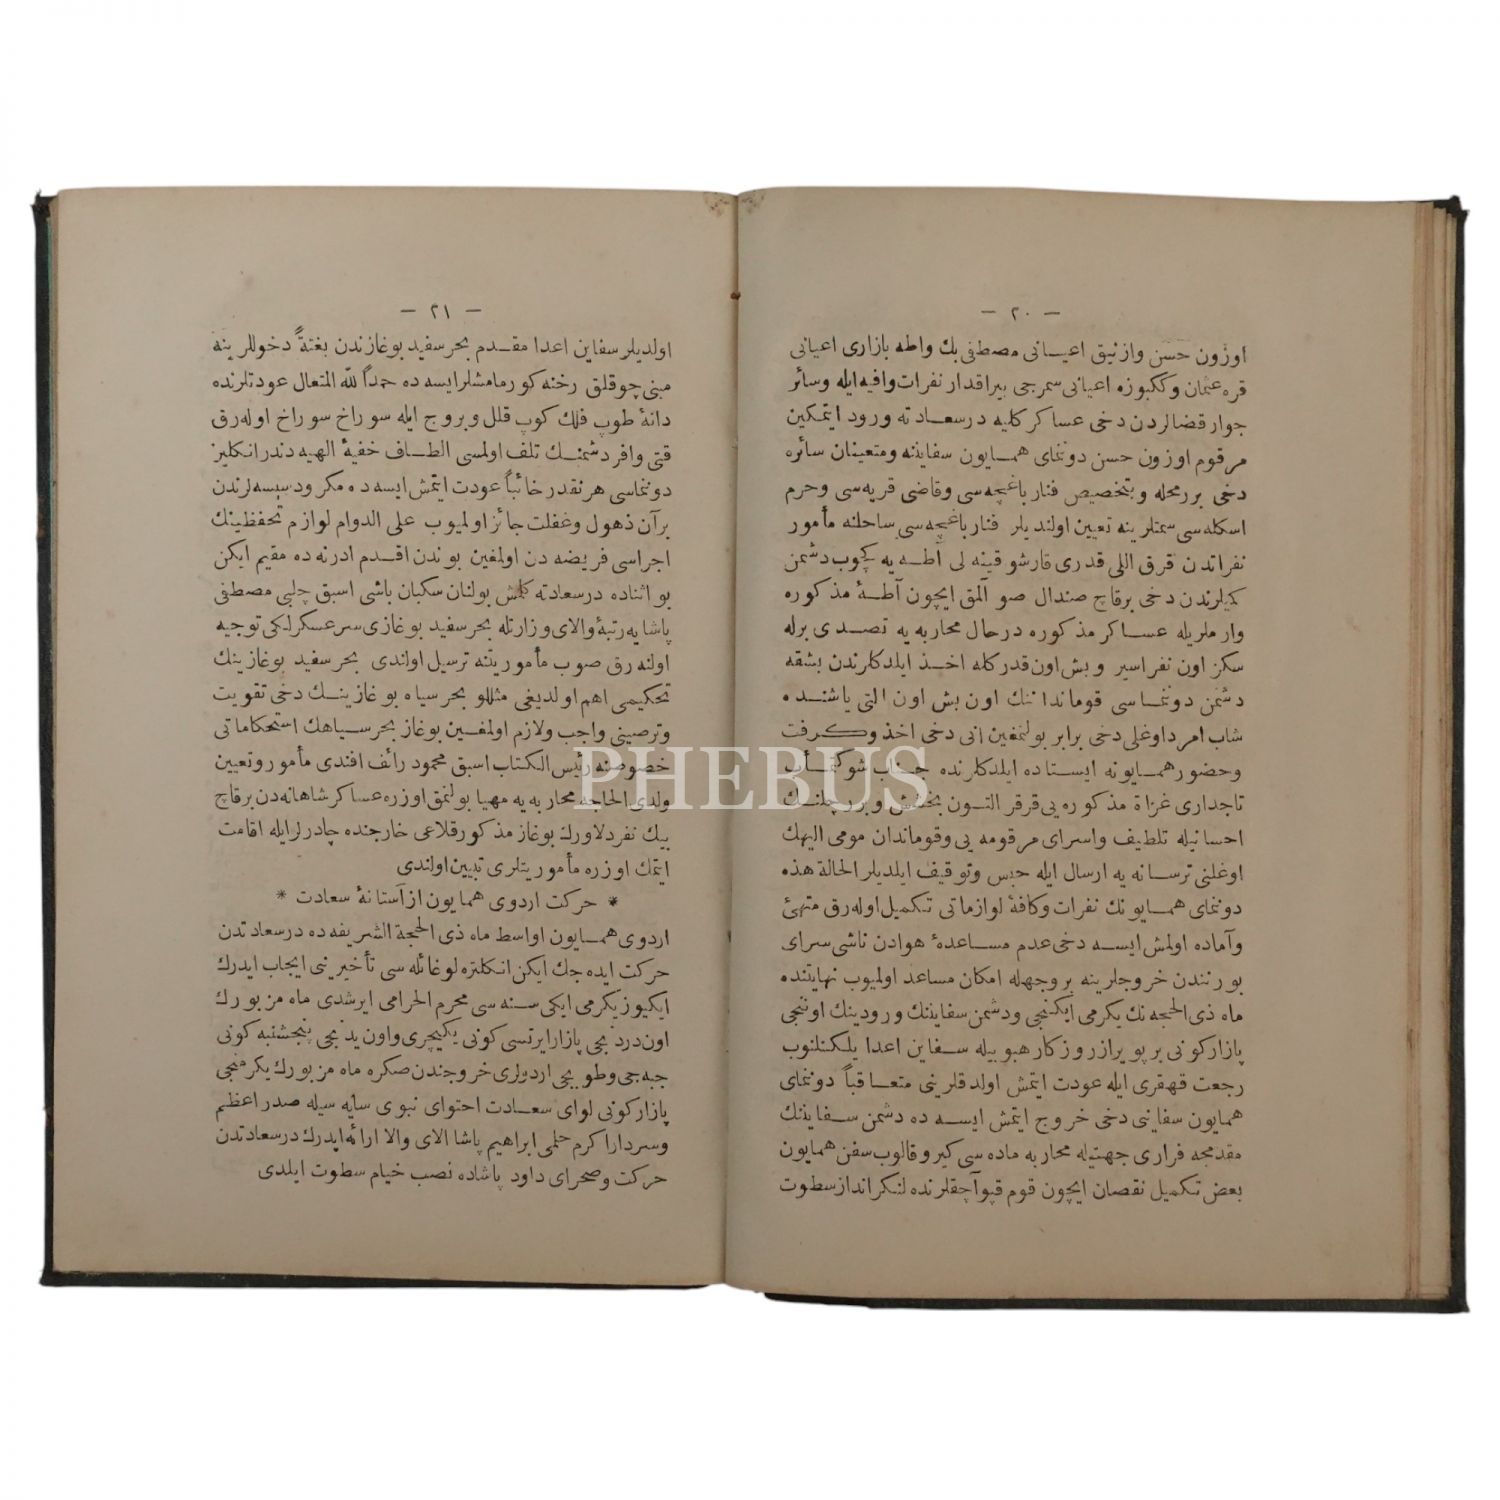 — ٢٠ —
اوزون حسن وازنيق اعيانى مصطفى بك واطه بازارى اعيانى
قره عثمان وككبوزه اعيانى سمرجى بيراقدار نفرات وافيه ايله وسائر
جوار قضالردن دخى عساكر كليه درسعادته ورود ايتمكين
مرقوم اوزون حسن دونماى همايون سفاينه ومتعينان سائره
دخى بررمحله وبتخصيص فنار باغچه سى وقاضى قريه سى وحرم
اسكله سى سمتلرينه تعيين اولنديلر فنار باغچه سى ساحلنه مأمور
نفراتدن قرق اللى قدرى قارشو قينه لى آطه يه كچوب دشمن
كميلرندن دخى برقاچ صندال صو آلمق ايچون آطۀ مذكوره
وارملريله عساكر مذكوره درحال محاربه يه تصدى برله
سكز اون نفر اسير وبش اون قدر كله اخذ ايلدكلرندن بشقه
دشمن دونماسى قوماندانك اون بش اون التى ياشنده
شاب امرد اوغلى دخى برابر بولنمغين انى دخى اخذ وكرفت
وحضور همايونه ايستاده ايلدكلرنده جناب شوكتمآب
تاجدارى غزاة مذكوره يى قرقر التون بخشش وبرر چلنك
احسانيله تلطيف واسراى مرقومه يى وقوماندان مومى اليهك
اوغلنى ترسانه يه ارسال ايله حبس وتوقيف ايلديلر الحالة هذه
دونماى همايونك نفرات وكافۀ لوازماتى تكميل اوله رق متهئ
وآماده اولمش ايسه دخى عدم مساعدۀ هوادن ناشى سراى
بورنندن خروجلرينه بروجهله امكان مساعد اولميوب نهايتنده
ماه ذى الحجه نك يكرمى ايكنجى ودشمن سفاينك ورودينك اوننجى
پازار كونى بر پويراز روزكار هبوبيله سفاين اعدا يلكنلنوب
رجعت قهقرى ايله عودت ايتمش اولدقلرينى متعاقباً دونماى
همايون سفاينى دخى خروج ايتمش ايسه ده دشمن سفاينك
مقدمجه فرارى جهتيله محاربه ماده سى كيرو قالوب سفن همايون
بعض تكميل نقصان ايچون قوم قپو آچقلرنده لنكر انداز سطوت
— ٢١ —
اولديلر سفاين اعدا مقدم بحر سفيد بوغازندن بغتةً دخوللرينه
مبنى چوقلق رخنه كورمامشلر ايسه ده حمداً لله المتعال عودتلرنده
دانۀ طوپ فلك كوپ قلل وبروج ايله سوراخ سوراخ اوله رق
قتى وافر دشمنك تلف اولمسى الطاف خفيۀ الهيه دندر انكليز
دونماسى هر نقدر خائباً عودت ايتمش ايسه ده مكر ودسيسه لرندن
برآن ذهول وغفلت جائز اولميوب على الدوام لوازم تحفظينك
اجراسى فريضه دن اولمغين بوندن اقدم ادرنه ده مقيم ايكن
بو اثناده درسعادته كلمش بولنان سكبان باشى اسبق چلبى مصطفى
پاشايه رتبۀ والاى وزارتله بحر سفيد بوغازى سرعسكرلكى توجيه
اولنه رق صوب مأموريتنه ترسيل اولندى بحر سفيد بوغازينك
تحكيمى اهم اولديغى مثللو بحر سياه بوغازينك دخى تقويت
وترصينى واجب ولازم اولمغين بوغاز بحر سياهك استحكاماتى
خصوصنه رئيس الكتاب اسبق محمود رائف افندى مأمور وتعيين
ولدى الحاجه محاربه يه مهيا بولنمق اوزره عساكر شاهانه دن برقاچ
بيك نفر دلاورك بوغاز مذكور قلاعى خارجنده چادرلر ايله اقامت
ايتمك اوزره مأموريتلرى تبيين اولندى
* حركت اردوى همايون از آستانۀ سعادت *
اردوى همايون اواسط ماه ذى الحجة الشريفه ده درسعادتدن
حركت ايده جك ايكن انكلتره لو غائله سى تأخيرينى ايجاب ايدرك
ايكيوز يكرمى ايكى سنه سى محرم الحرامى ايرشدى ماه مزبورك
اون دردنجى پازار ايرتسى كونى يكيچرى واون يدنجى پنجشنبه كونى
جبه جى وطوپجى اردولرى خروجندن صكره ماه مزبورك يكرمنجى
پازار كونى لواى سعادت احتواى نبوى سايه سيله صدر اعظم
وسردار اكرم حلمى ابراهيم پاشا الاى والا ارائه ايدرك درسعادتدن
حركت وصحراى داود پاشاده نصب خيام سطوت ايلدى
PHEBUS